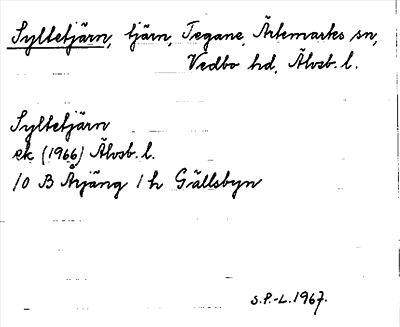 Syltetjärn, tjärn, Tegane, Ärtemarks sn,
Vedbo hd, Älvsb. l.
Syltetjärn
ek (1966) Älvsb. l.
10 B Årjäng 1 h Gällsbyn
S.P.-L. 1967.